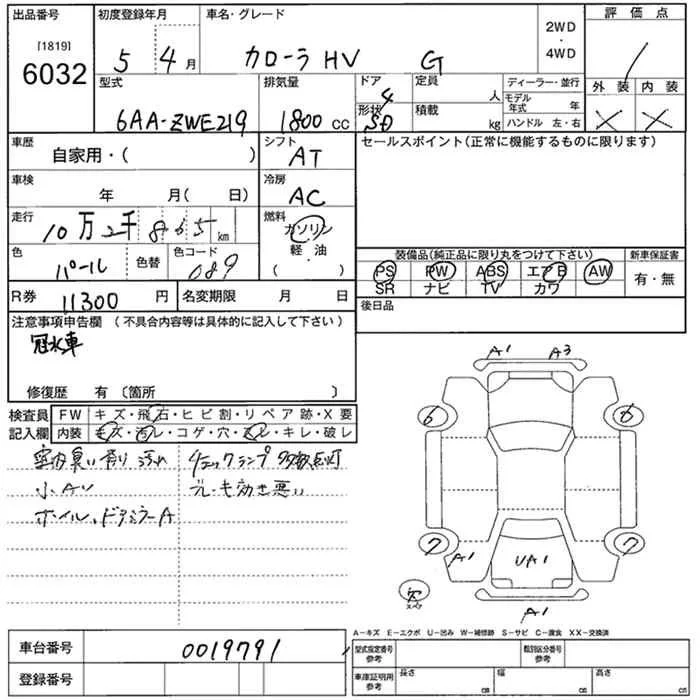 出品番号 初度登録年月 車名・グレード 2WD・4WD 評価点
[1819]
6032 5 4月 カローラ HV G
外装 内装
型式 排気量 ドア 4 定員 人 ディーラー・並行
6AA-ZWE219 1800 cc 形状 SD 積載 kg モデル年式 年 ハンドル 左・右 × ×
車歴 シフト セールスポイント(正常に機能するものに限ります)
自家用・( ) AT
車検 冷房
年 月( 日) AC
走行 燃料
10万2千865km ガソリン
軽・油
( )
色 色替 色コード
パール 089
装備品(純正品に限り丸をつけて下さい) 新車保証書
PS PW ABS エアB AW 有・無
SR ナビ TV カワ
R券 11300 円 名変期限 月 日 後日品
注意事項申告欄 (不具合内容等は具体的に記入して下さい)
冠水車
修復歴 有 〔箇所 〕
検査員 FW キズ・飛石・ヒビ割・リペア跡・X要
記入欄 内装 キズ・汚レ・コゲ・穴・スレ・キレ・破レ
室内臭い有り 汚れ チェックランプ多数点灯
小AU ブレーキ効き悪い
ホイル、ドアミラーA
A1 A3
6 6
7 A1 UA1 7
スペア
A1
A−キズ E−エクボ U−凹み W−補修跡 S−サビ C−腐食 XX−交換済
車台番号 0019791 型式指定番号 参考 類別区分番号 参考
登録番号 車庫証明用 参考 長さ cm 幅 cm 高さ cm